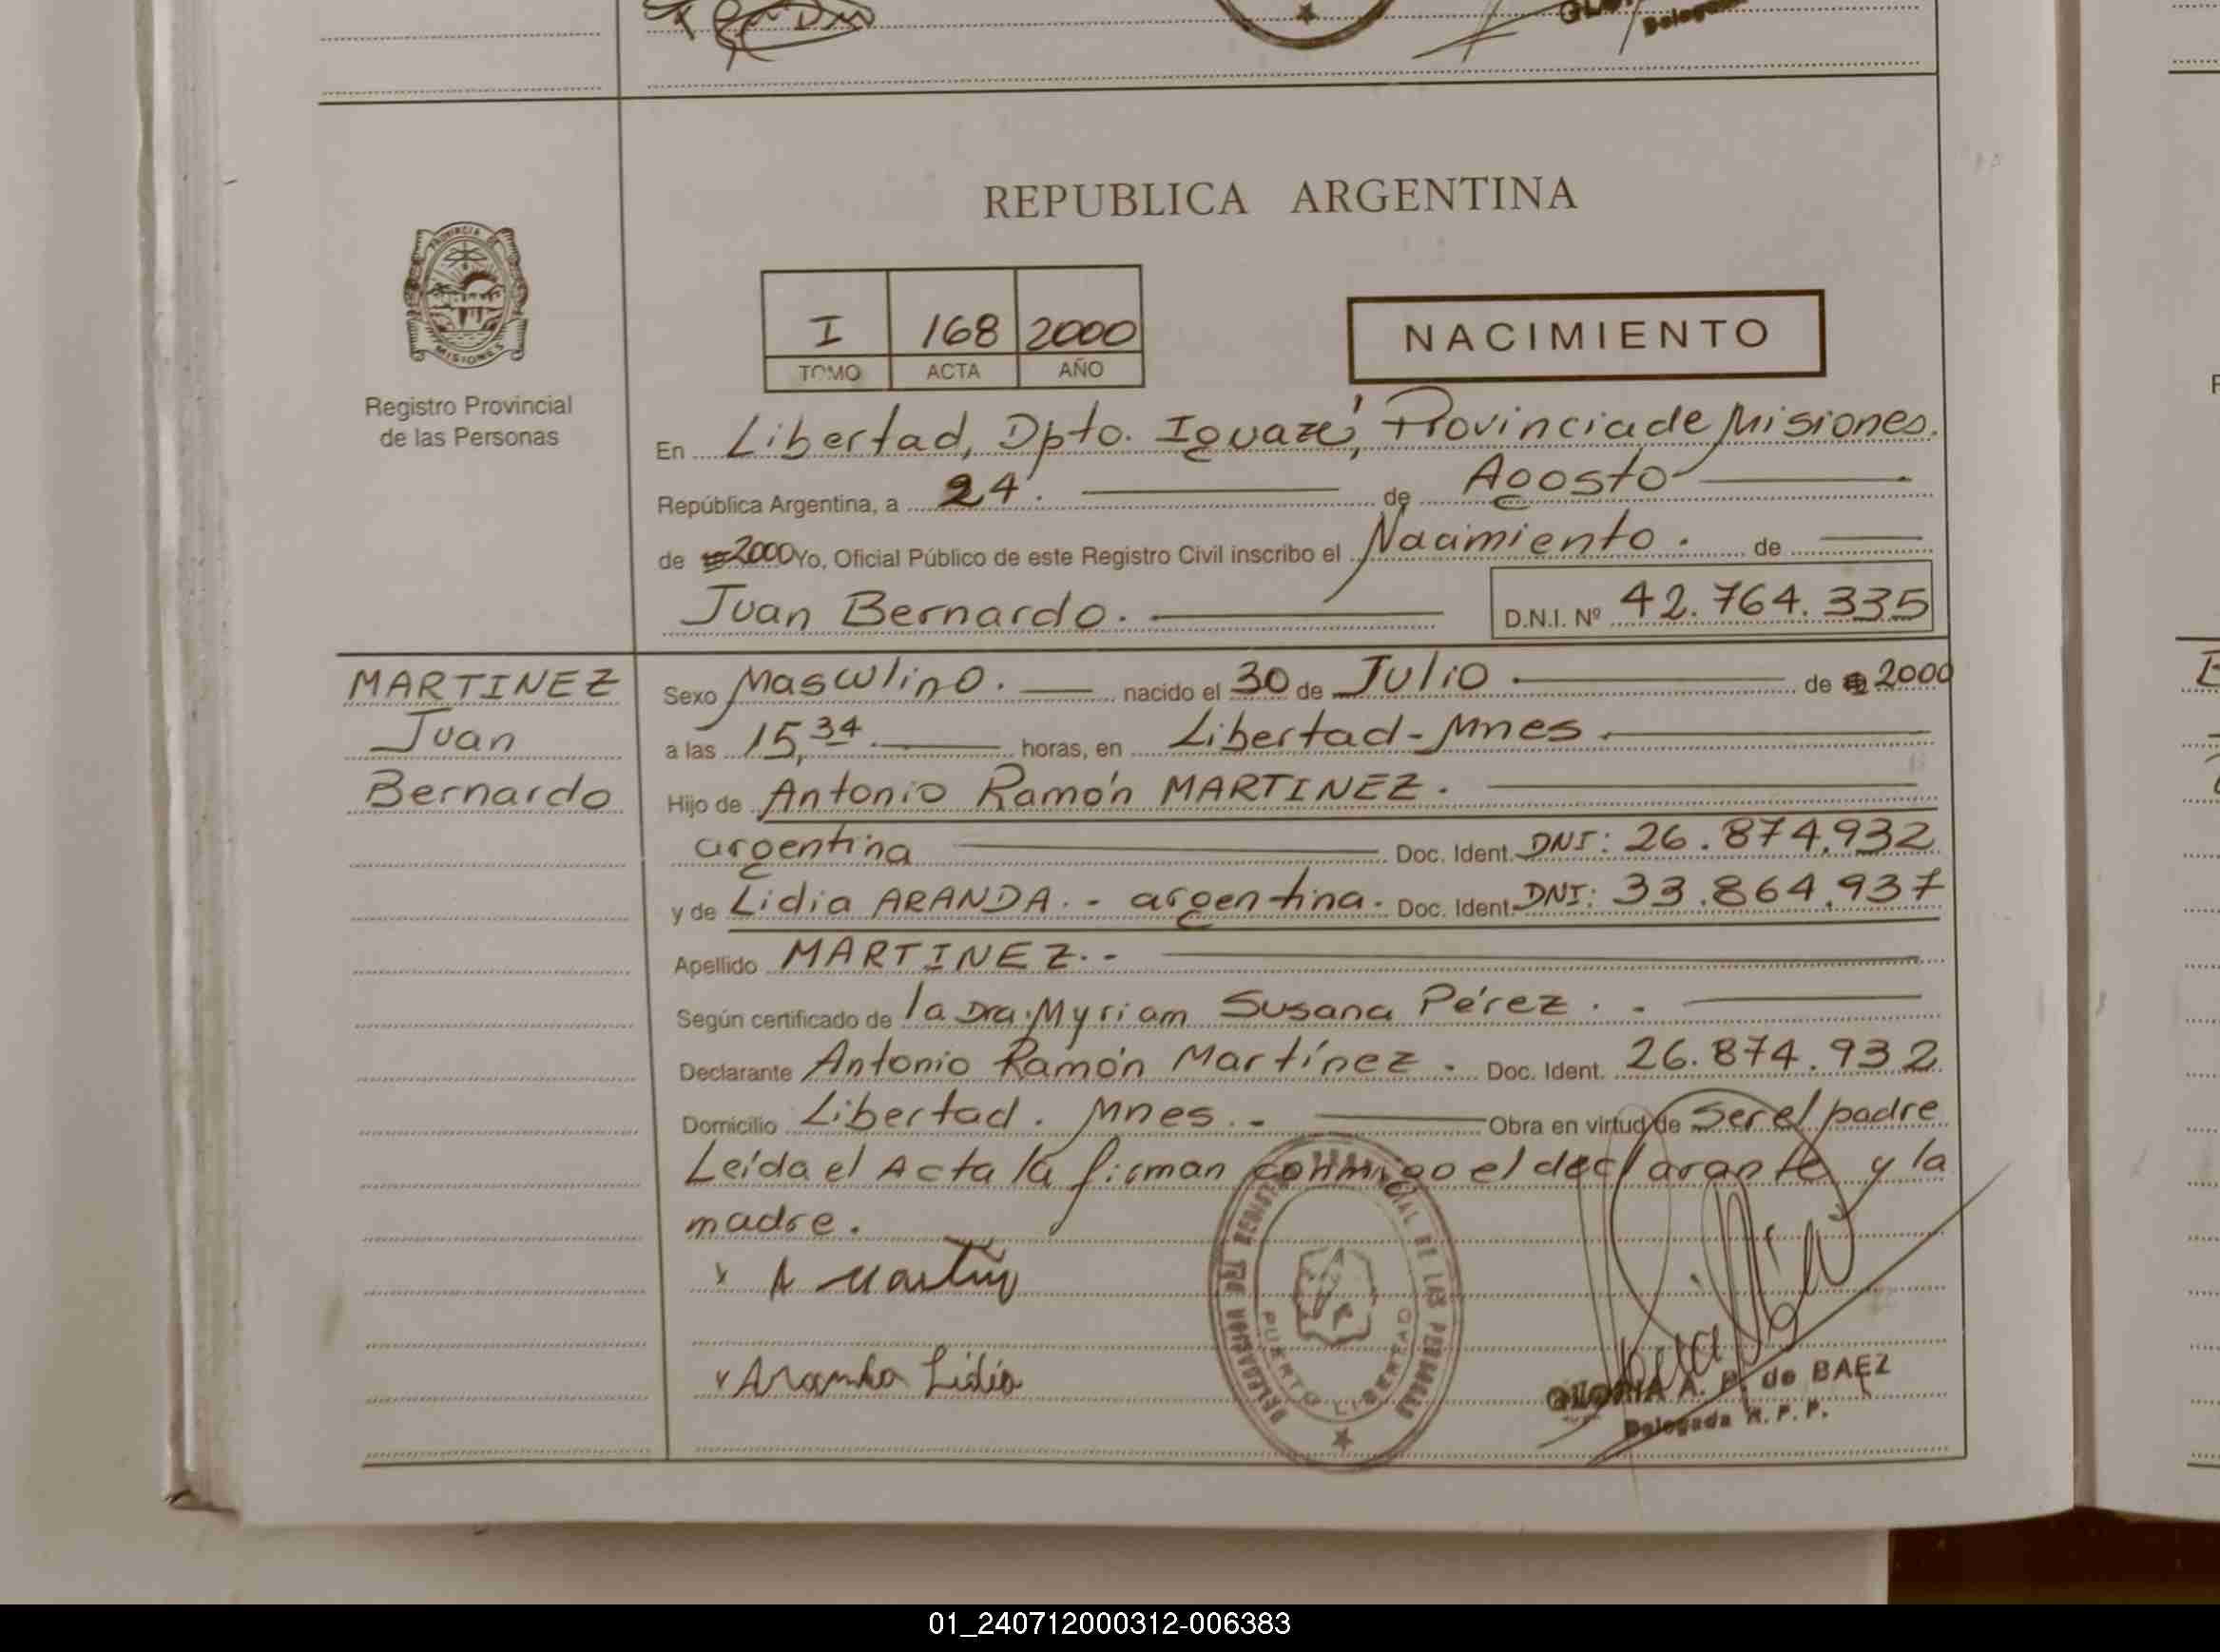 REPUBLICA ARGENTINA
PROVINCIA DE
MISIONES
Registro Provincial
de las Personas
I 168 2000
TOMO ACTA AÑO
NACIMIENTO
En Libertad, Dpto. Iguazú, Provincia de Misiones.
República Argentina, a 24. de Agosto
de 2000 Yo, Oficial Público de este Registro Civil inscribo el Nacimiento. de
Juan Bernardo. D.N.I. Nº 42.764.335
MARTINEZ
Juan
Bernardo
Sexo Masculino. nacido el 30 de Julio de 2000
a las 15,34 horas, en Libertad - Mnes.
Hijo de Antonio Ramón MARTINEZ.
argentina Doc. Ident. DNI: 26.874.932
y de Lidia ARANDA. - argentina. Doc. Ident. DNI: 33.864.937
Apellido MARTINEZ. -
Según certificado de la Dra. Myriam Susana Pérez. -
Declarante Antonio Ramón Martínez. Doc. Ident. 26.874.932
Domicilio Libertad. Mnes. - Obra en virtud de Ser el padre
Leída el Acta la firman conmigo el declarante y la
madre.
x A Martin
x Aranda Lidia
PUERTO LIBERTAD
GLORIA A. P. de BAEZ
Delegada R.P.P.
01_240712000312-006383